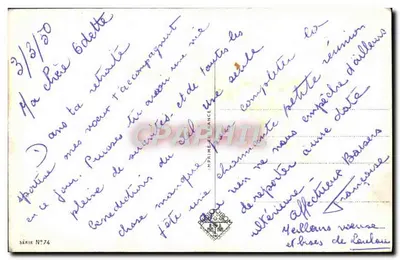 3/3/50
Ma chère Odette
Dans ta retraite
mes vœux t'accompagnent
en ce jour. Puisses tu avoir une vie
pleine de saintetés, et de toutes les
bénédictions du Ciel. Une seule
chose manque pour compléter la
fête une charmante petite réunion
que rien ne nous empêche d'ailleurs
de reporter à une date
ultérieure -
Affectueux Baisers
Françoise
Meilleurs vœux
et bises de Loulou
IMPRIMÉ EN FRANCE
SÉRIE N° 74